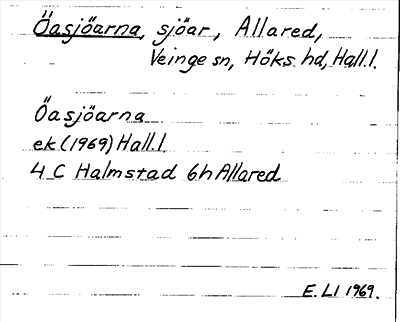 Öasjöarna, sjöar, Allared,
Veinge sn, Höks hd, Hall.l.
Öasjöarna
ek (1969) Hall.l.
4 C Halmstad 6h Allared
E. Ll 1969.